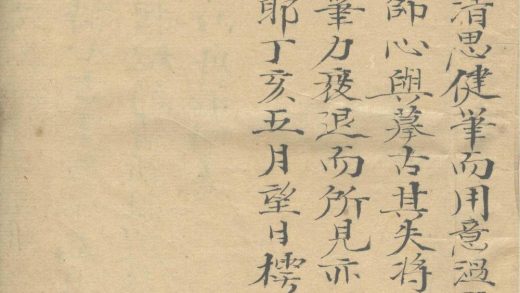 清思健筆而用意過
師心與摹古其失將
筆力疲退而所見亦
耶丁亥五月望日樗